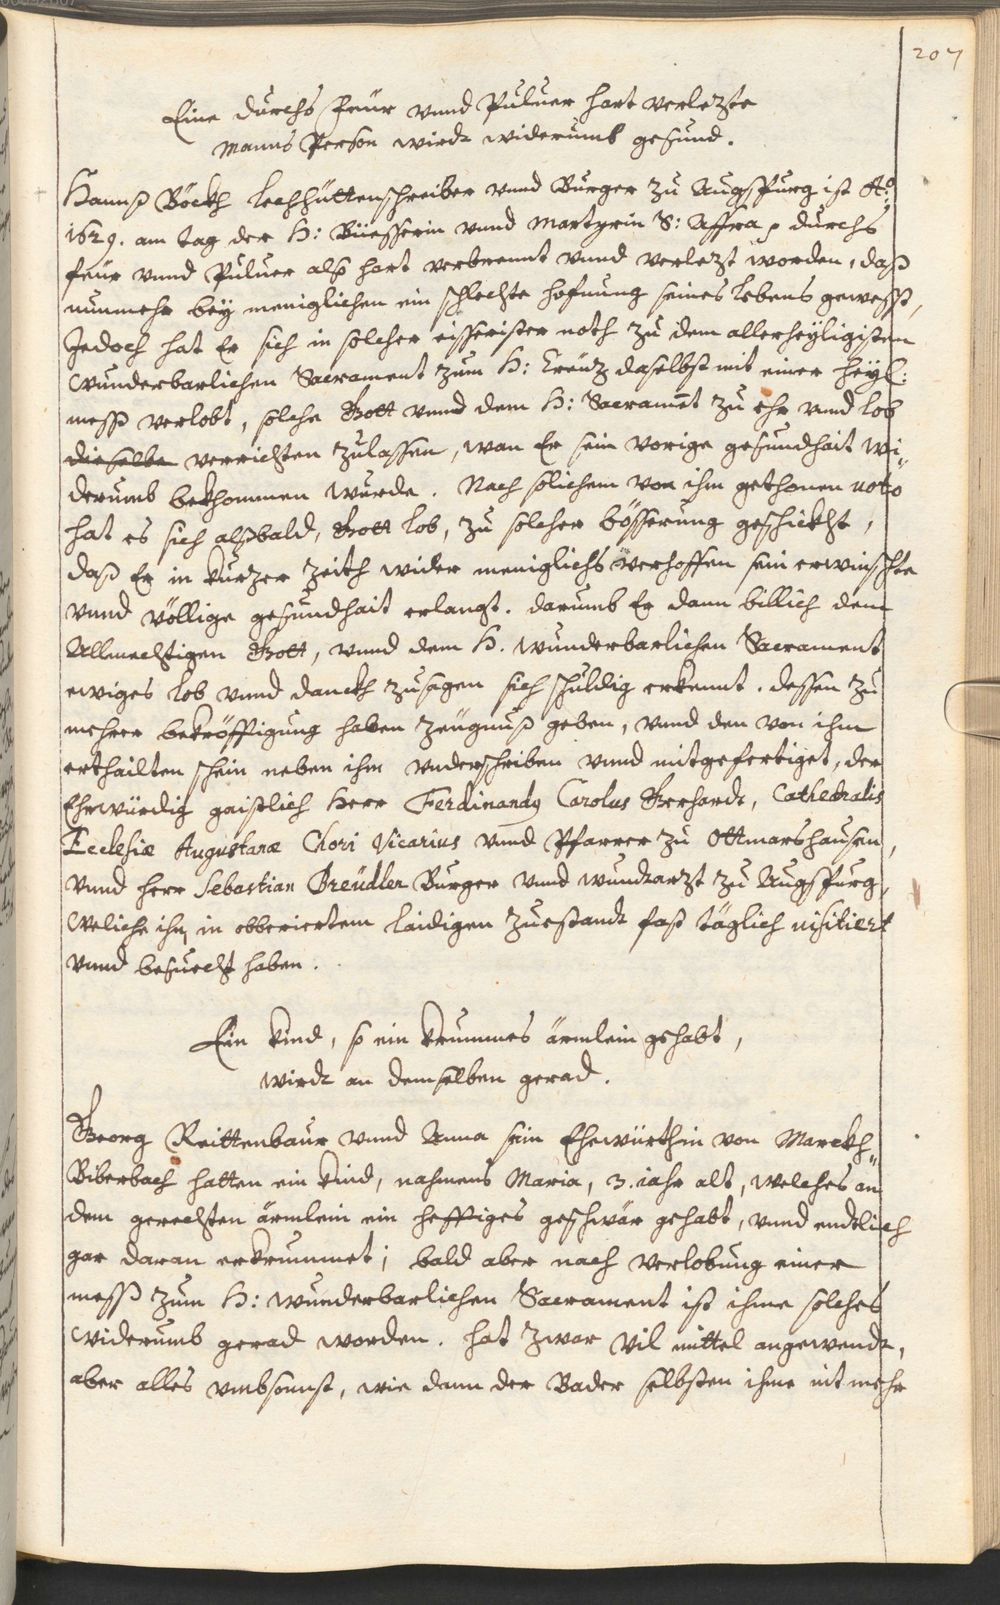 207
Eine durchs feür vnnd Puluer hart verlezte
Manns Person wirdt widerumb gesund.
Hannß Böckh Lechhüttenschreiber vnnd Burger zu Augspurg ist Aõ:
1629. am tag der H: Büesserin vnnd Martyrin S: Affra durchs
feür vnnd Puluer alß hart verbrennt vnnd verlezt worden, daß
nunmehr bey meniglichen ein schlechte hofnung seines lebens gewesst,
Jedoch hat Er sich in solcher eisserister noth zu dem allerheyligisten
Wunderbarlichen Sacrament zum H: Creüz daselbst mit einer heyl:
mess verlobt, solche Gott vnnd dem H: Sacramēt zu ehr vnnd lob
dieselbe verrichten zulassen, wan Er sein vorige gesundhait wi„
derumb bekhommen wurde. Nach solichem von ihm gethonen uoto
hat es sich alßbald, Gott lob, zu solcher bösserung geschickht,
daß Er in kurzer Zeith wider meniglichs verhoffen sein erwinschte
vnnd völlige gesundhait erlangt. Darumb Er dann billich dem
Allmechtigen Gott, vnnd dem H. wunderbarlichen Sacrament
ewiges lob vnnd danckh zusagen sich schuldig erkennt. Dessen zu
mehrer bekröfftigung haben Zeügnuß geben, vnnd den von ihm
erthailten schein neben ihm vnderschriben vnnd mitgefertiget, der
Ehrwürdig gaistlich Herr Ferdinandq Carolus Gerhardt, Cathedralis
Ecclesiæ Augustanæ Chori Vicarius vnnd Pfarrer zu Ottmarshausen,
vnnd herr Sebastian Greüdler Burger vnnd wundtarzt zu Augspurg,
Weliche ihn in obberiertem laidigen Zuestandt fast täglich visitiert
vnnd besuecht haben.
Ein kind, so ein krummes ärmlein gehabt,
wirdt an demselben gerad.
Georg Reittenbaur vnnd Anna sein Ehewürthin von Marckh„
Biberbach hatten ein kind, nahmens Maria, 3. iahr alt, welches an
dem gerechten ärmlein ein hefftiges geschwär gehabt, vnnd endtlich
gar daran erkrummet; bald aber nach verlobung einer
mess zum H: wunderbarlichen Sacrament ist ihme solches
Widerumb gerad worden. Hat zwar vil mittel angewendt,
aber alles vmbsonst, wie dann der Bader selbsten ihme nit mehr